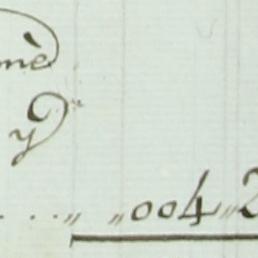 mè
y
. . . „ „004„2